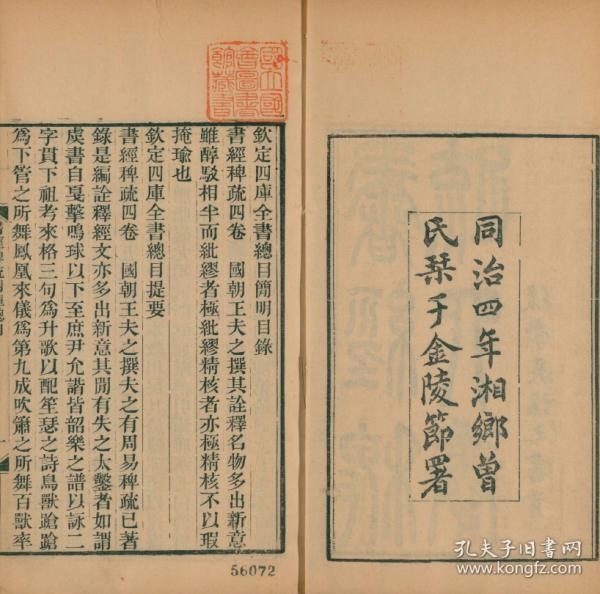 同治四年湘鄉曾
氏栞于金陵節署
國立國
會圖書
館藏書
欽定四庫全書總目簡明目錄
書經稗疏四卷 國朝王夫之撰其詮釋名物多出新意
雖醇駁相半而紕繆者極紕繆精核者亦極精核不以瑕
掩瑜也
欽定四庫全書總目提要
書經稗疏四卷 國朝王夫之撰夫之有周易稗疏已著
錄是編詮釋經文亦多出新意其閒有失之太鑿者如謂
虞書自戛擊鳴球以下至庶尹允諧皆韶樂之譜以詠二
字貫下祖考來格三句為升歌以配笙瑟之詩鳥獸蹌蹌
為下管之所舞鳳凰來儀為第九成吹簫之所舞百獸率
56072
孔夫子旧书网
www.kongfz.com